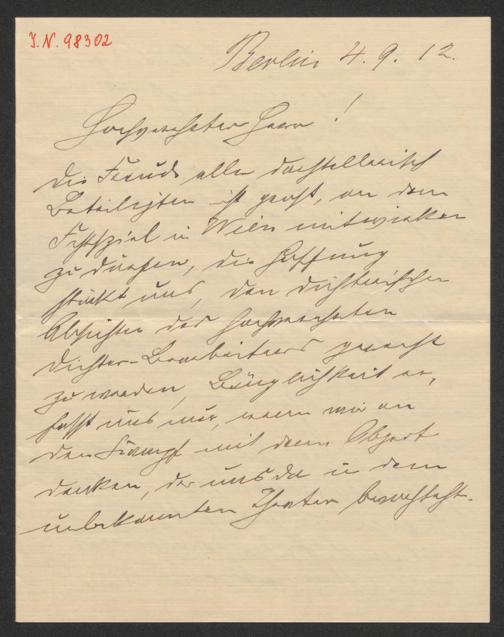 J.N. 98302
Berlin 4. 9. 12.
Hochverehrter Herr!
Die Freude aller darstellerisch
Beteiligten ist groß, an dem
Festspiel in Wien mitwirken
zu dürfen, die Hoffnung
stärkt uns, den dichterischen
Absichten des hochverehrten
Dichter-Bearbeiters gerecht
zu werden, Bänglichkeit er,
faßt uns nur, wenn wir an
den Kampf mit dem Objekt
denken, der uns da in dem
unbekannten Theater bevorsteht.